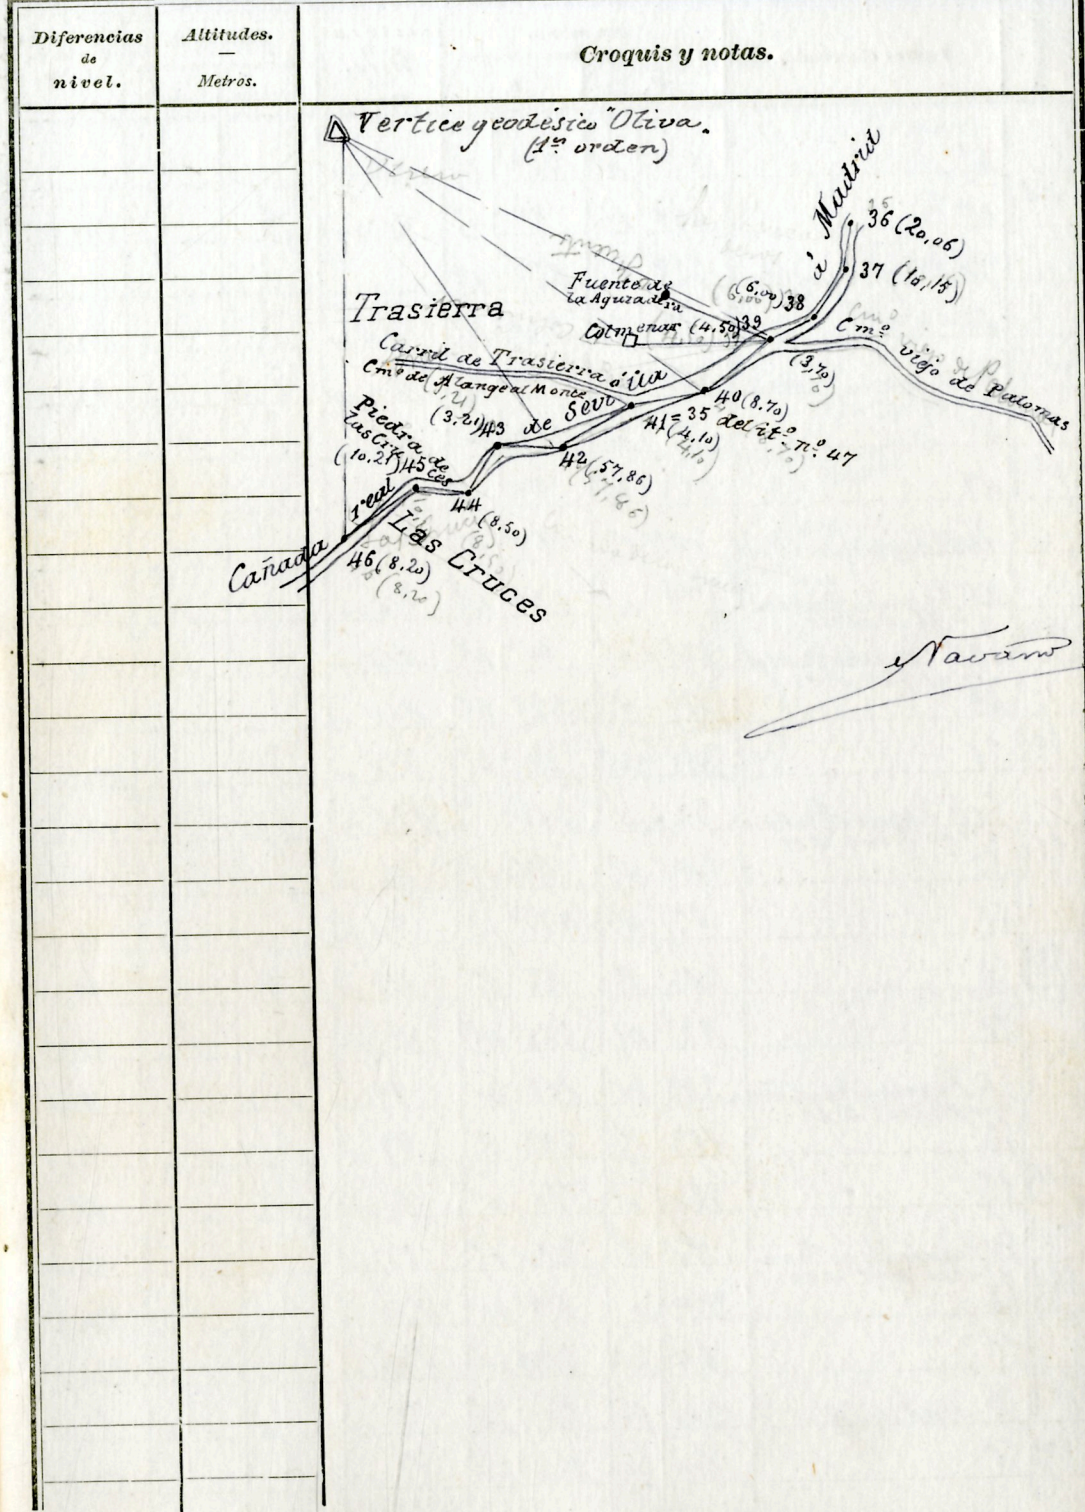 Diferencias
de
nivel.
Altitudes.
Metros.
Croquis y notas.
Vertice geodésico "Oliva"
(1er. orden)
á Madrid
36 (20,06)
37 (16,15)
Fuente de
la Aguzadera
(6,00) 38
Colmenar (4,50) 39
Cmº viejo de Palomas
(3,70)
Trasierra
Carril de Trasierra ó
Cmº de Alange al Monte
40 (8,70)
41=35 del itº nº 47
(4,10)
(3,21) 43
42 (57,86)
Piedra de
las Cruces
(10,21) 45
44 (8,50)
Las Cruces
46 (8,20)
Cañada real de Sevilla
Navarro